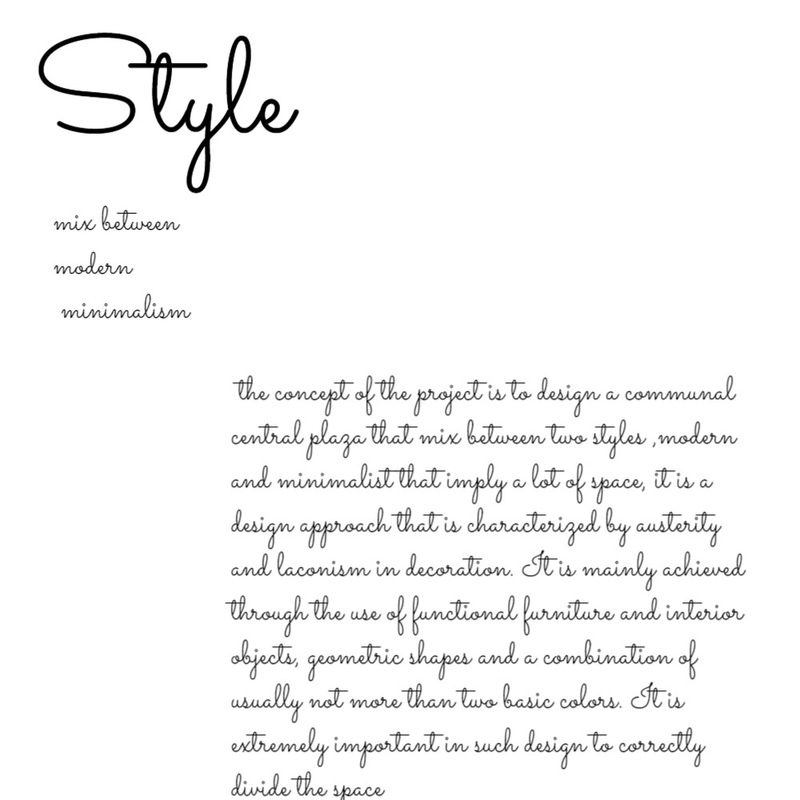 Style
mix between
modern
minimalism
the concept of the project is to design a communal
central plaza that mix between two styles ,modern
and minimalist that imply a lot of space, it is a
design approach that is characterized by austerity
and laconism in decoration. It is mainly achieved
through the use of functional furniture and interior
objects, geometric shapes and a combination of
usually not more than two basic colors. It is
extremely important in such design to correctly
divide the space